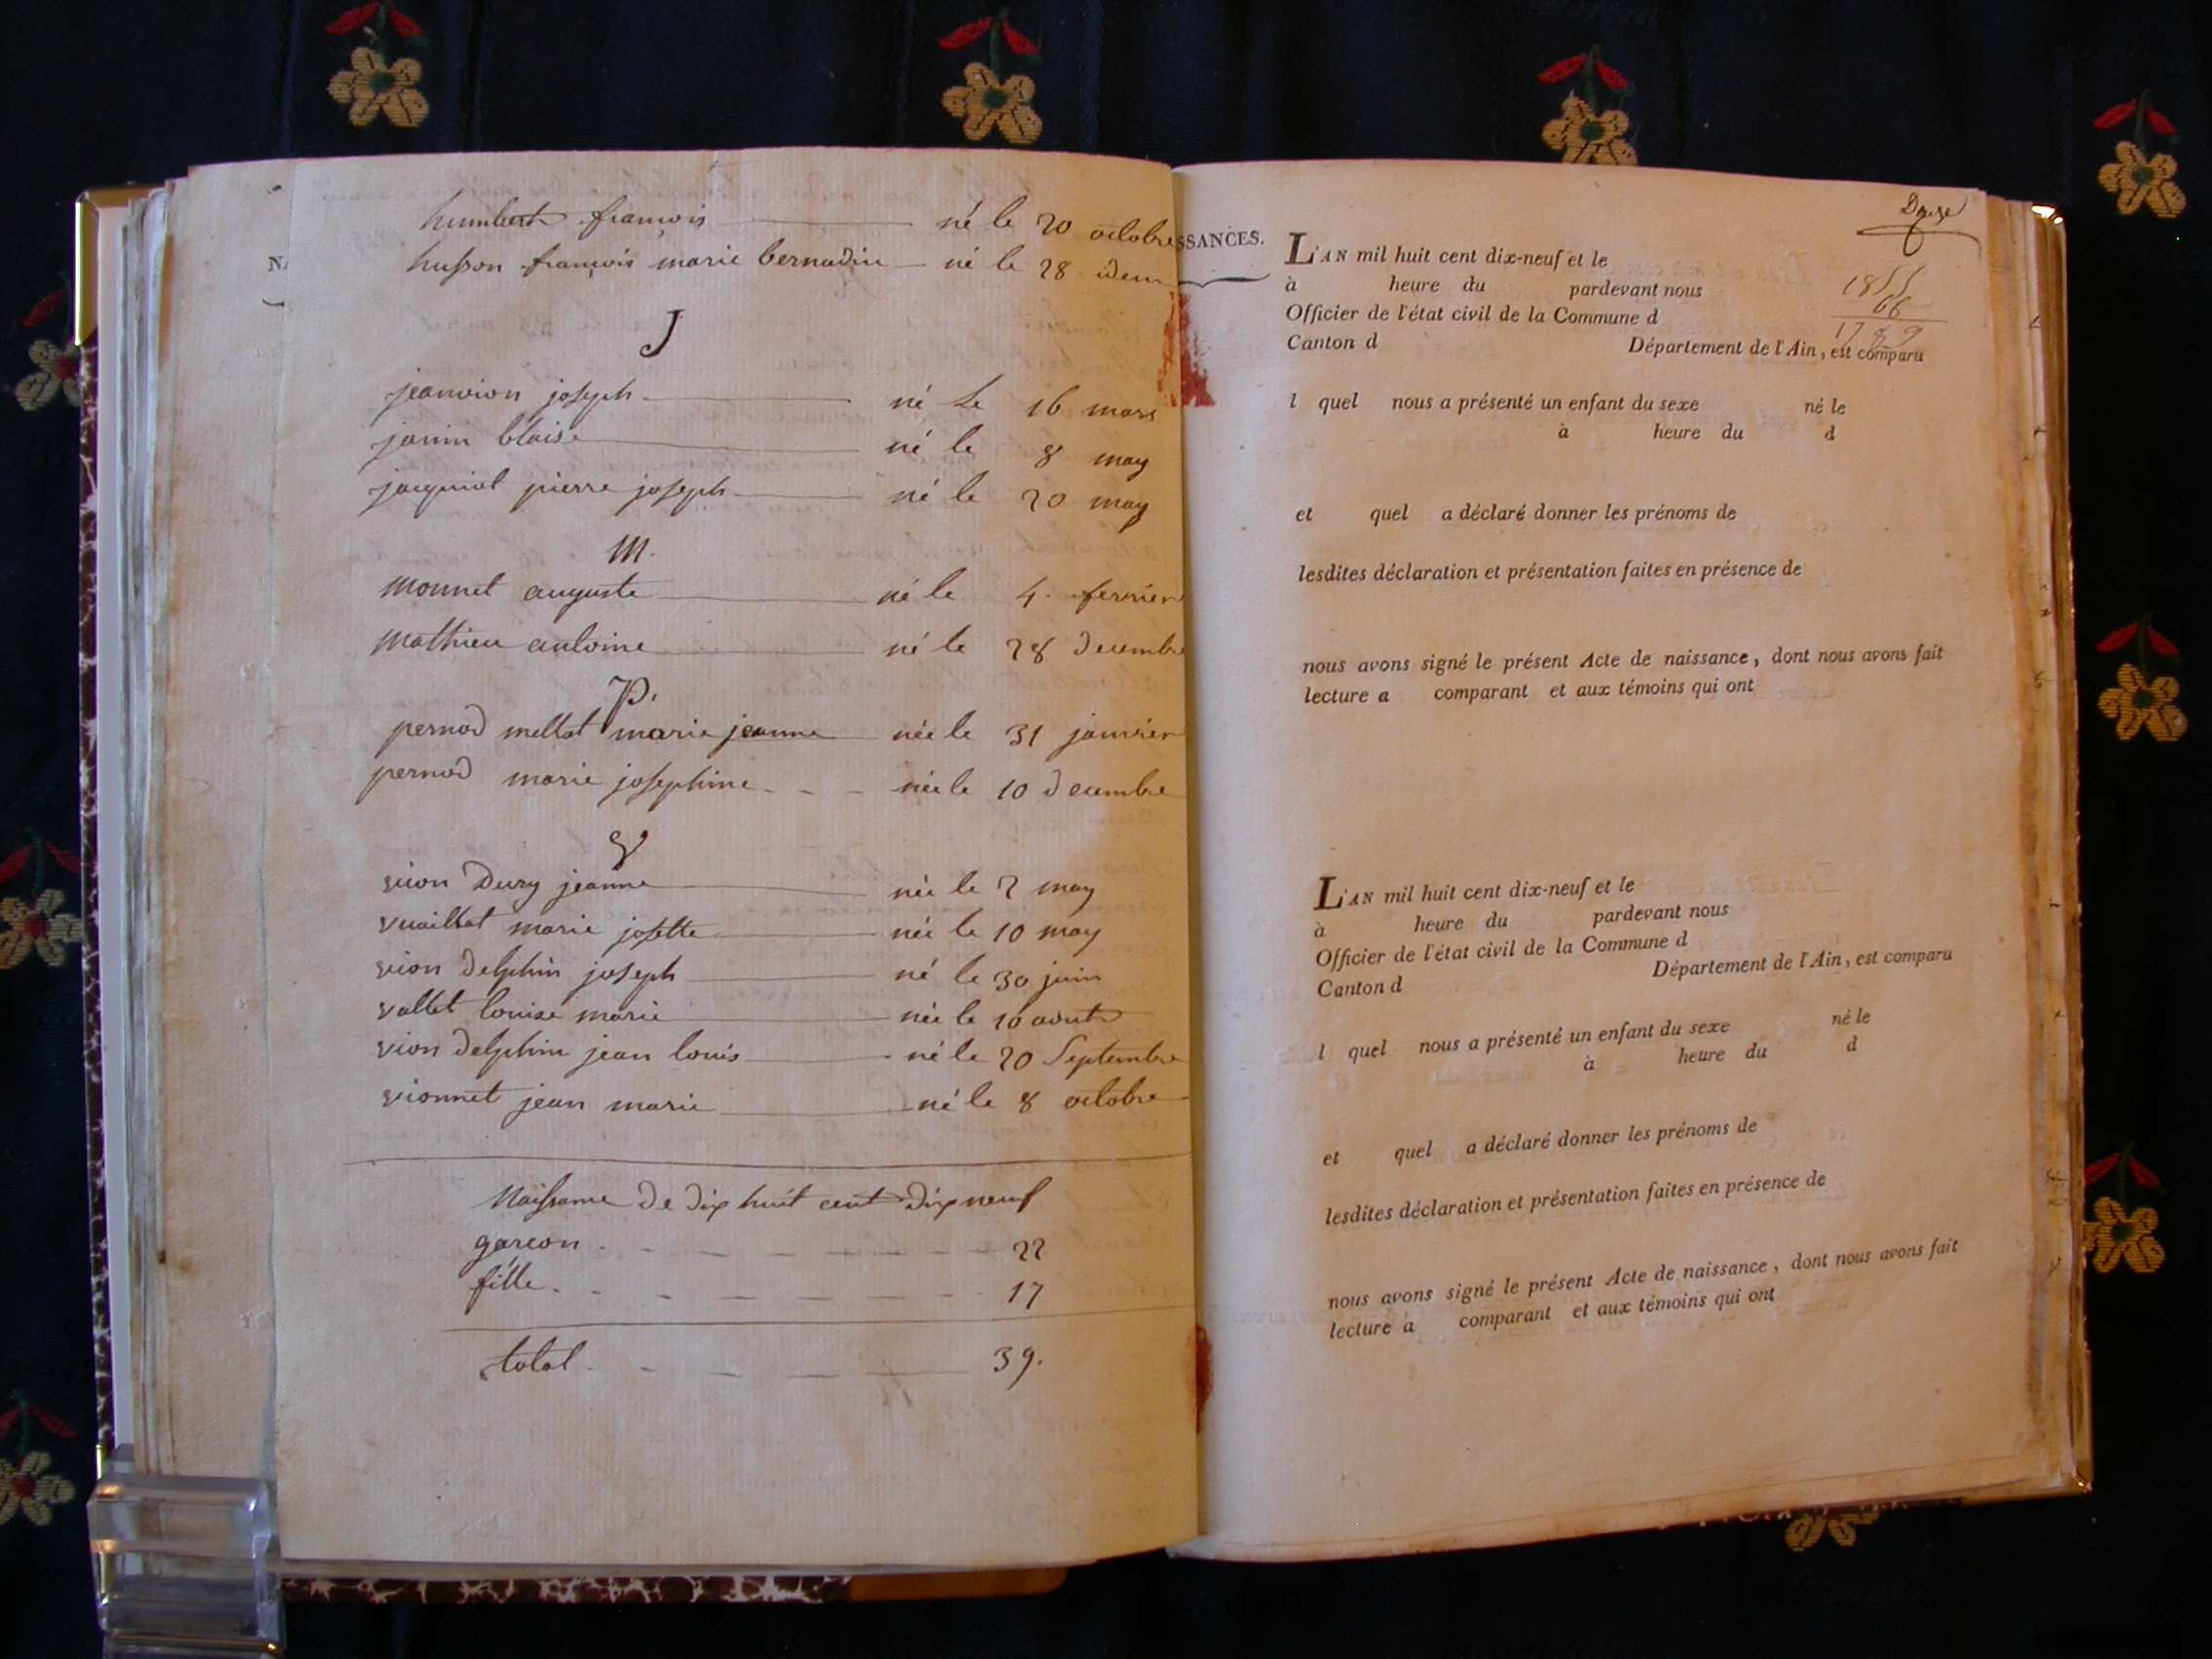 humbert françois né le 20 octobre
husson françois marie bernadin né le 28 idem
J
jeanvion joseph né Le 16 mars
janin blaise né le 8 may
jacquiot pierre joseph né le 20 may
M.
Monnet auguste né le 4. fevrier
Mathieu antoine né le 28 decembre
P.
pernod mellat marie jeanne née le 31 janvier
pernod marie josephine née le 10 decembre
V
vion Dury jeanne née le 2 may
vuaillat marie josette née le 10 may
vion delphin joseph né le 30 juin
vallet louise marie née le 10 aout
vion delphin jean louis né le 20 Septembre
vionnet jean marie né le 8 octobre
Naissance de dix huit cent dix neuf
garcon 22
fille 17
total 39.
SSANCES.
L'AN mil huit cent dix-neuf et le
à heure du pardevant nous
Officier de l'état civil de la Commune d
Canton d Département de l'Ain, est comparu
1855
66
1789
l quel nous a présenté un enfant du sexe né le
à heure du d
et quel a déclaré donner les prénoms de
lesdites déclaration et présentation faites en présence de
nous avons signé le présent Acte de naissance, dont nous avons fait
lecture a comparant et aux témoins qui ont
L'AN mil huit cent dix-neuf et le
à heure du pardevant nous
Officier de l'état civil de la Commune d
Canton d Département de l'Ain, est comparu
l quel nous a présenté un enfant du sexe né le
à heure du d
et quel a déclaré donner les prénoms de
lesdites déclaration et présentation faites en présence de
nous avons signé le présent Acte de naissance, dont nous avons fait
lecture à comparant et aux témoins qui ont